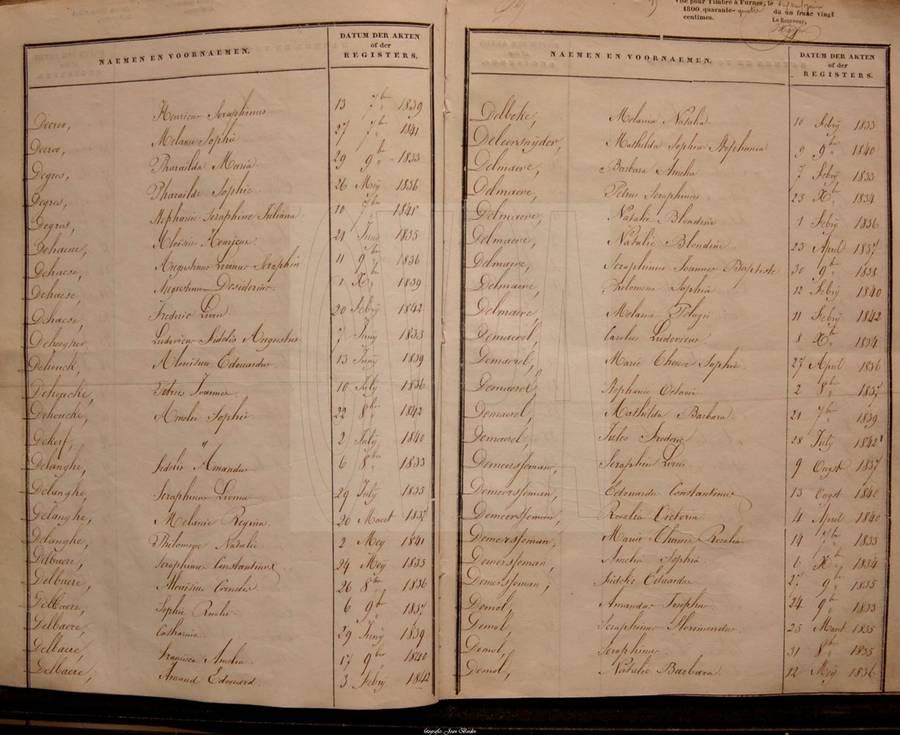 NAEMEN EN VOORNAEMEN. DATUM DER AKTEN
of der
REGISTERS.
Decroo, Henricus Seraphinus 13 7b 1839
Decroo, Melanie Sophie 27 7b 1841
Degrus, Pharaïlda Maria 29 9b 1833
Degrus, Pharaïlde Sophie 26 Mey 1836
Degrus, Stephanie Seraphine Juliana 10 7b 1841
Dehaene, Aloïsius 21 Juny 1835
Dehaese, Augustinus Seraphin 11 9b 1836
Dehaese, Augustinus Desiderius 1 Xb 1839
Dehaese, Frederic Livin 20 Febry 1842
Ludovicus Fidelis Augustus 7 Juny 1833
Dehouck, Aloïsius Edouardus 13 Juny 1839
Dehoucke, Petrus Joannes 10 July 1836
Dehoucke, Amelie Sophie 22 8b 1842
Dekerf, 2 July 1840
Delanghe, Fidelis Amandus 6 8b 1833
Delanghe, Seraphinus 29 July 1835
Delanghe, Melanie Regina 20 Maert 1837
Delanghe, Philomene Natalie 2 Mey 1841
Delbaere, Seraphinus Constantinus 24 Mey 1835
Delbaere, Aloÿsius Cornelis 26 8b 1836
Delbaere, Sophie Amelie 6 9b 1837
Delbaere, Catharina 29 Juny 1839
Delbaere, Francisca Amelia 17 9b 1840
Delbaere, Amand Edouard 3 Febry 1842
Visé pour Timbre à Furnes, le
1800 quarante-quatre du un franc vingt
centimes. Le Receveur,
NAEMEN EN VOORNAEMEN. DATUM DER AKTEN
of der
REGISTERS.
Delbeke, Melania Natalia 10 Febry 1833
Deleersnyder, Mathilda Sophia Stephania 9 9b 1840
Delmaere, Barbara Amelia 7 Febry 1833
Delmaere, Petrus Seraphinus 23 Xb 1834
Delmaere, Natalie Blondine 1 Febry 1836
Delmaere, Natalie Blondine 23 April 1837
Delmaere, Seraphinus Joannes Baptiste 30 9b 1838
Delmaere, Philomena Sophia 12 Febry 1840
Delmaere, Melanie Pelagie 11 Febry 1842
Demarel, Carolus Ludovicus 8 Xb 1834
Demarel, Marie Sophie 27 April 1836
Demarel, Stephanie Octavie 2 8b 1837
Demarel, Mathilda Barbara 21 7b 1839
Demarel, Jules Frederic 28 July 1842
Demeersseman, Seraphin Louis 9 Oogst 1837
Demeersseman, Edouardus Constantinus 13 Oogst 1840
Demeersseman, Rosalia Victoria 4 April 1840
Demeersseman, Marie Therese Rosalia 14 7b 1833
Demeersseman, Amelia Sophia 6 Xb 1834
Demeersseman, Isidore Eduardus 9b 1835
Demol, Amandus Josephus 24 9b 1833
Demol, Seraphinus Florimondus 25 Maert 1835
Demol, Seraphinus 31 8b 1835
Demol, Natalie Barbara 12 Mey 1836